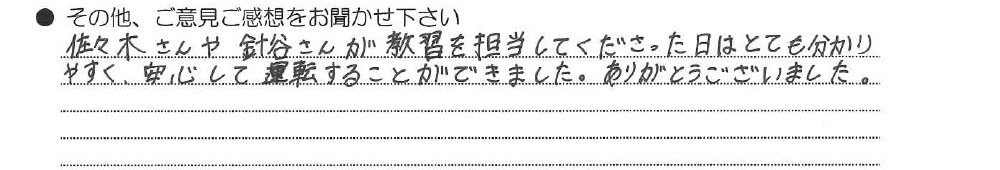 ● その他、ご意見ご感想をお聞かせ下さい
佐々木さんや針谷さんが教習を担当してくださった日はとても分かり
やすく、安心して運転することができました。ありがとうございました。